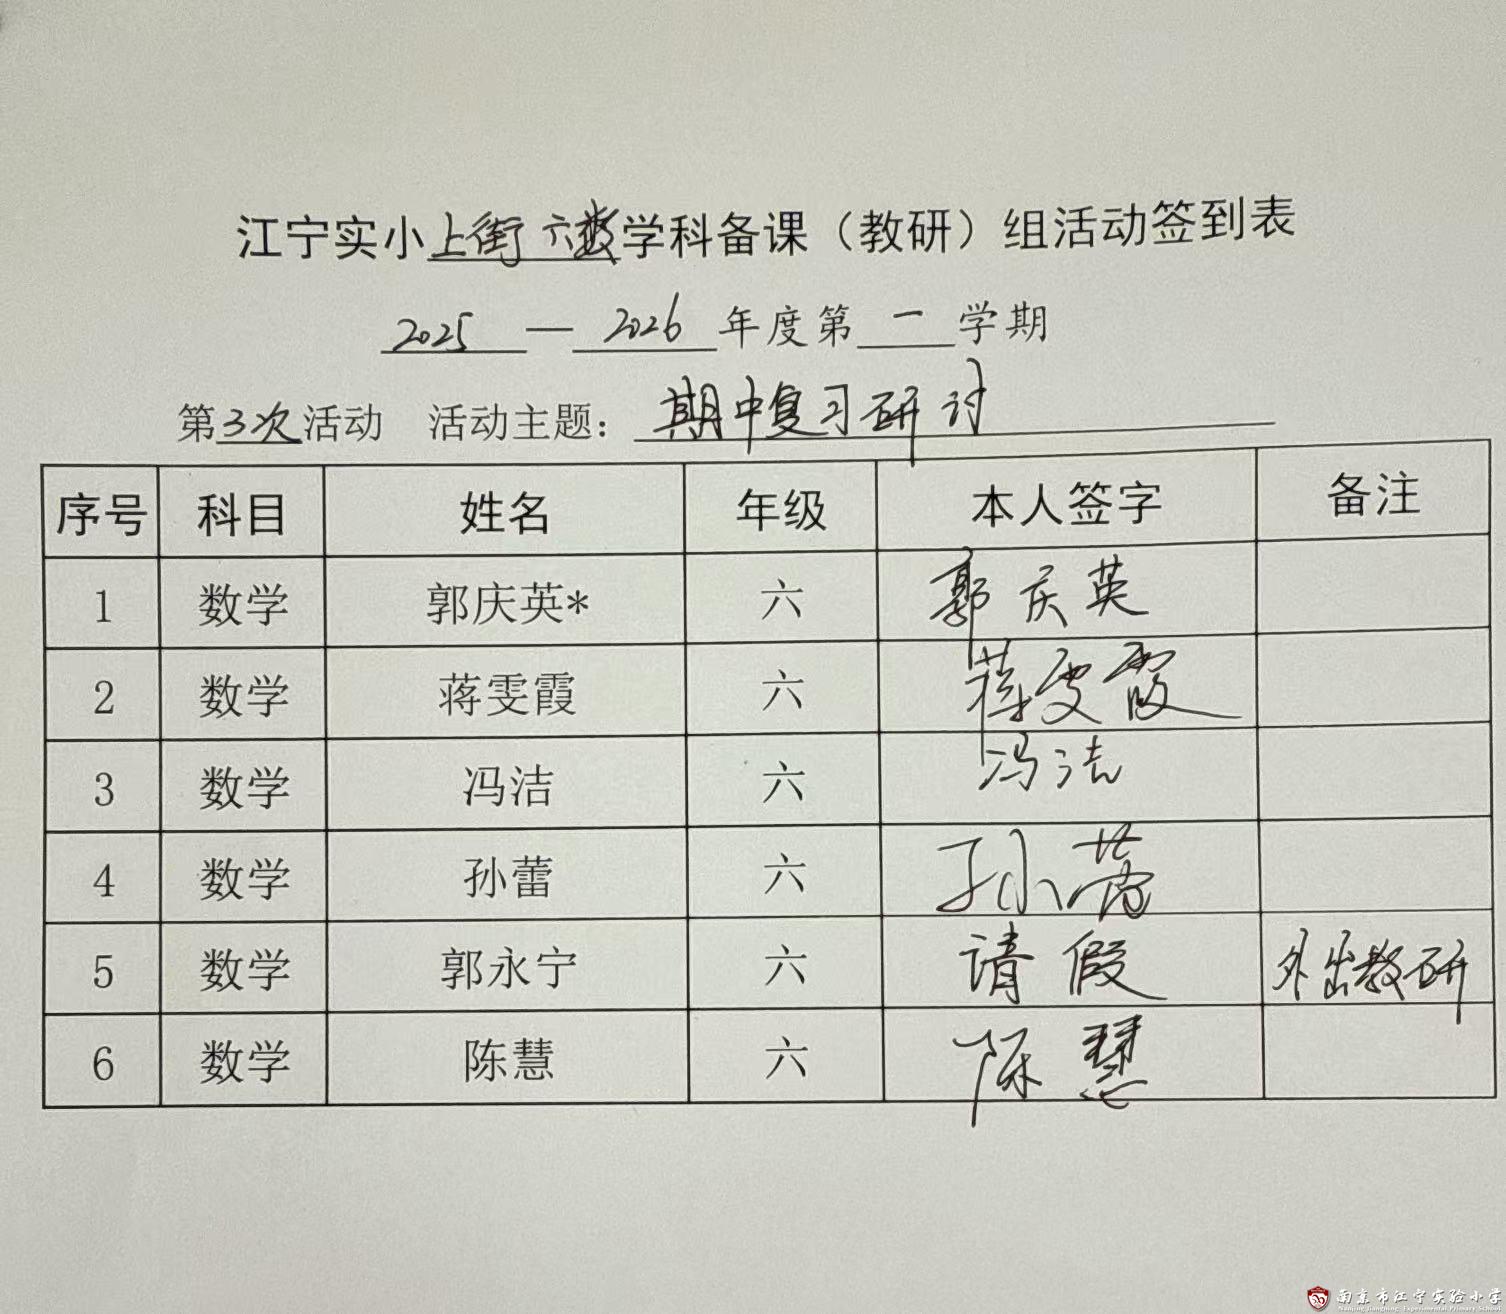 江宁实小上街六数学科备课（教研）组活动签到表
2025—2026年度第一学期
第3次活动 活动主题：期中复习研讨
序号 科目 姓名 年级 本人签字 备注
1 数学 郭庆英* 六 郭庆英
2 数学 蒋雯霞 六 蒋雯霞
3 数学 冯洁 六 冯洁
4 数学 孙蕾 六 孙蕾
5 数学 郭永宁 六 请假 外出教研
6 数学 陈慧 六 陈慧
南京市江宁实验小学
Nanjing Jiangning Experimental Primary School